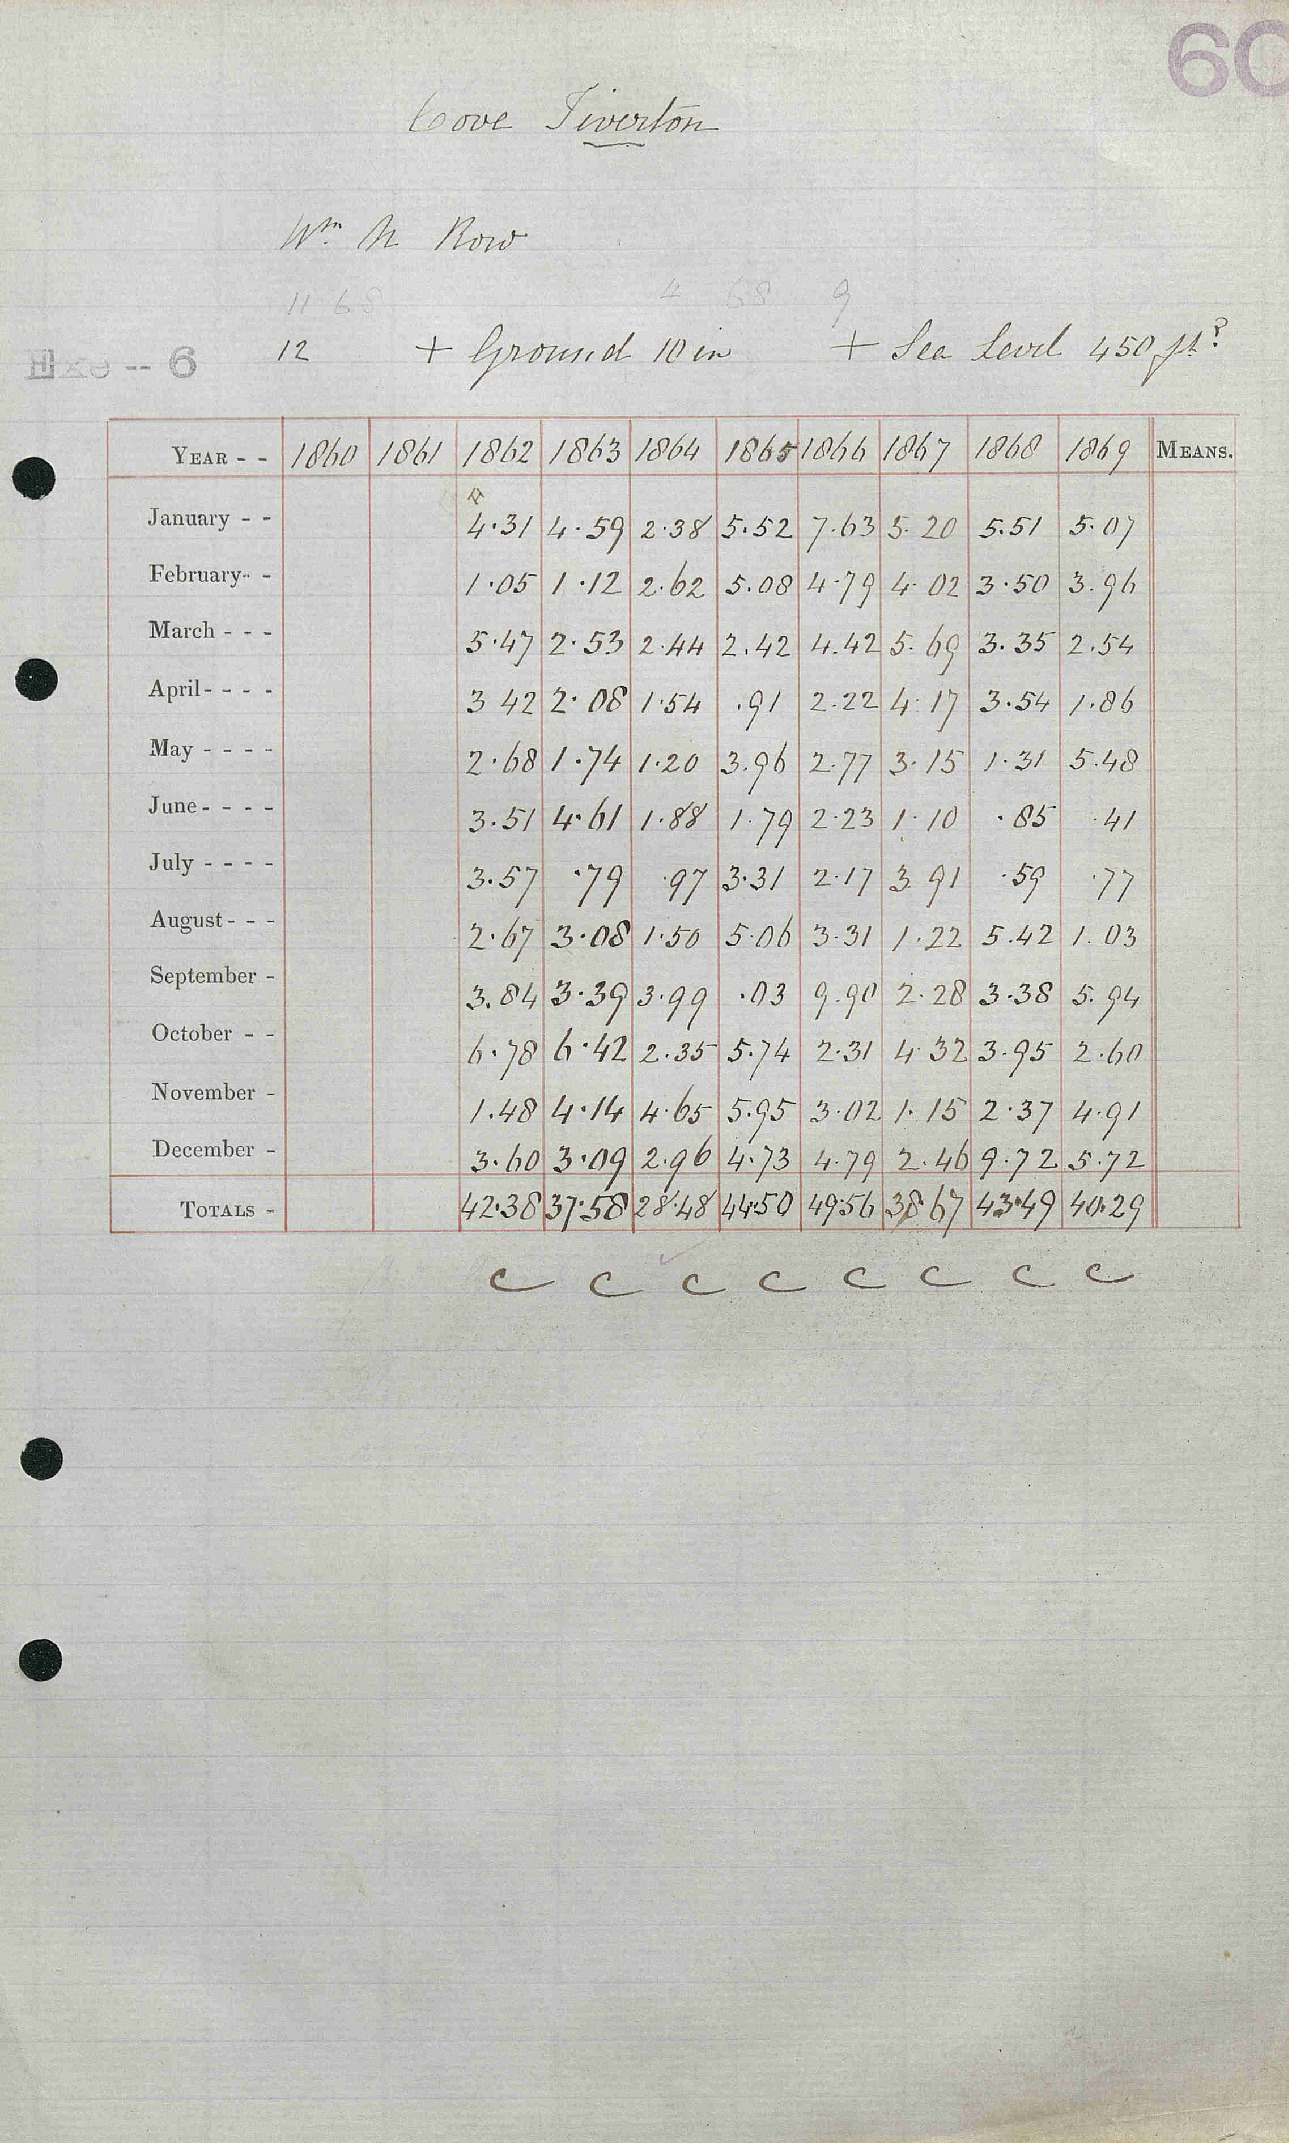 60
Cove Tiverton
Wm N Row
11 68 4 68 9
Exe -- 6 12 + Ground 10 in + Sea Level 450 ft?
YEAR - - 1860 1861 1862 1863 1864 1865 1866 1867 1868 1869 MEANS.
January - - 4.31 4.59 2.38 5.52 7.63 5.20 5.51 5.07
February - - 1.05 1.12 2.62 5.08 4.79 4.02 3.50 3.96
March - - - 5.47 2.53 2.44 2.42 4.42 5.69 3.35 2.54
April - - - - 3 42 2.08 1.54 .91 2.22 4.17 3.54 1.86
May - - - - 2.68 1.74 1.20 3.96 2.77 3.15 1.31 5.48
June - - - - 3.51 4.61 1.88 1.79 2.23 1.10 .85 .41
July - - - - 3.57 .79 .97 3.31 2.17 3 91 .59 .77
August - - - 2.67 3.08 1.50 5.06 3.31 1.22 5.42 1.03
September - 3.84 3.39 3.99 .03 9.90 2.28 3.38 5.94
October - - 6.78 6.42 2.35 5.74 2.31 4 32 3.95 2.60
November - 1.48 4.14 4.65 5.95 3.02 1.15 2.37 4.91
December - 3.60 3.09 2.96 4.73 4.79 2.46 9.72 5.72
TOTALS - 42.38 37.58 28.48 44.50 49.56 38.67 43.49 40.29
c c c c c c c c